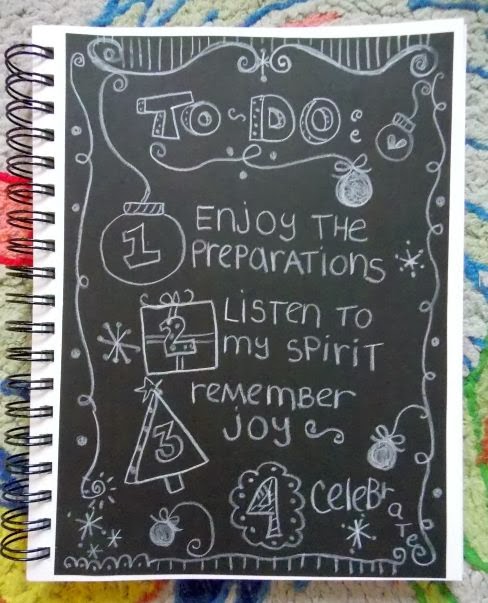 To-Do:
1 Enjoy The
Preparations
2 Listen to
my spirit
3 remember
joy
4 Celebrate